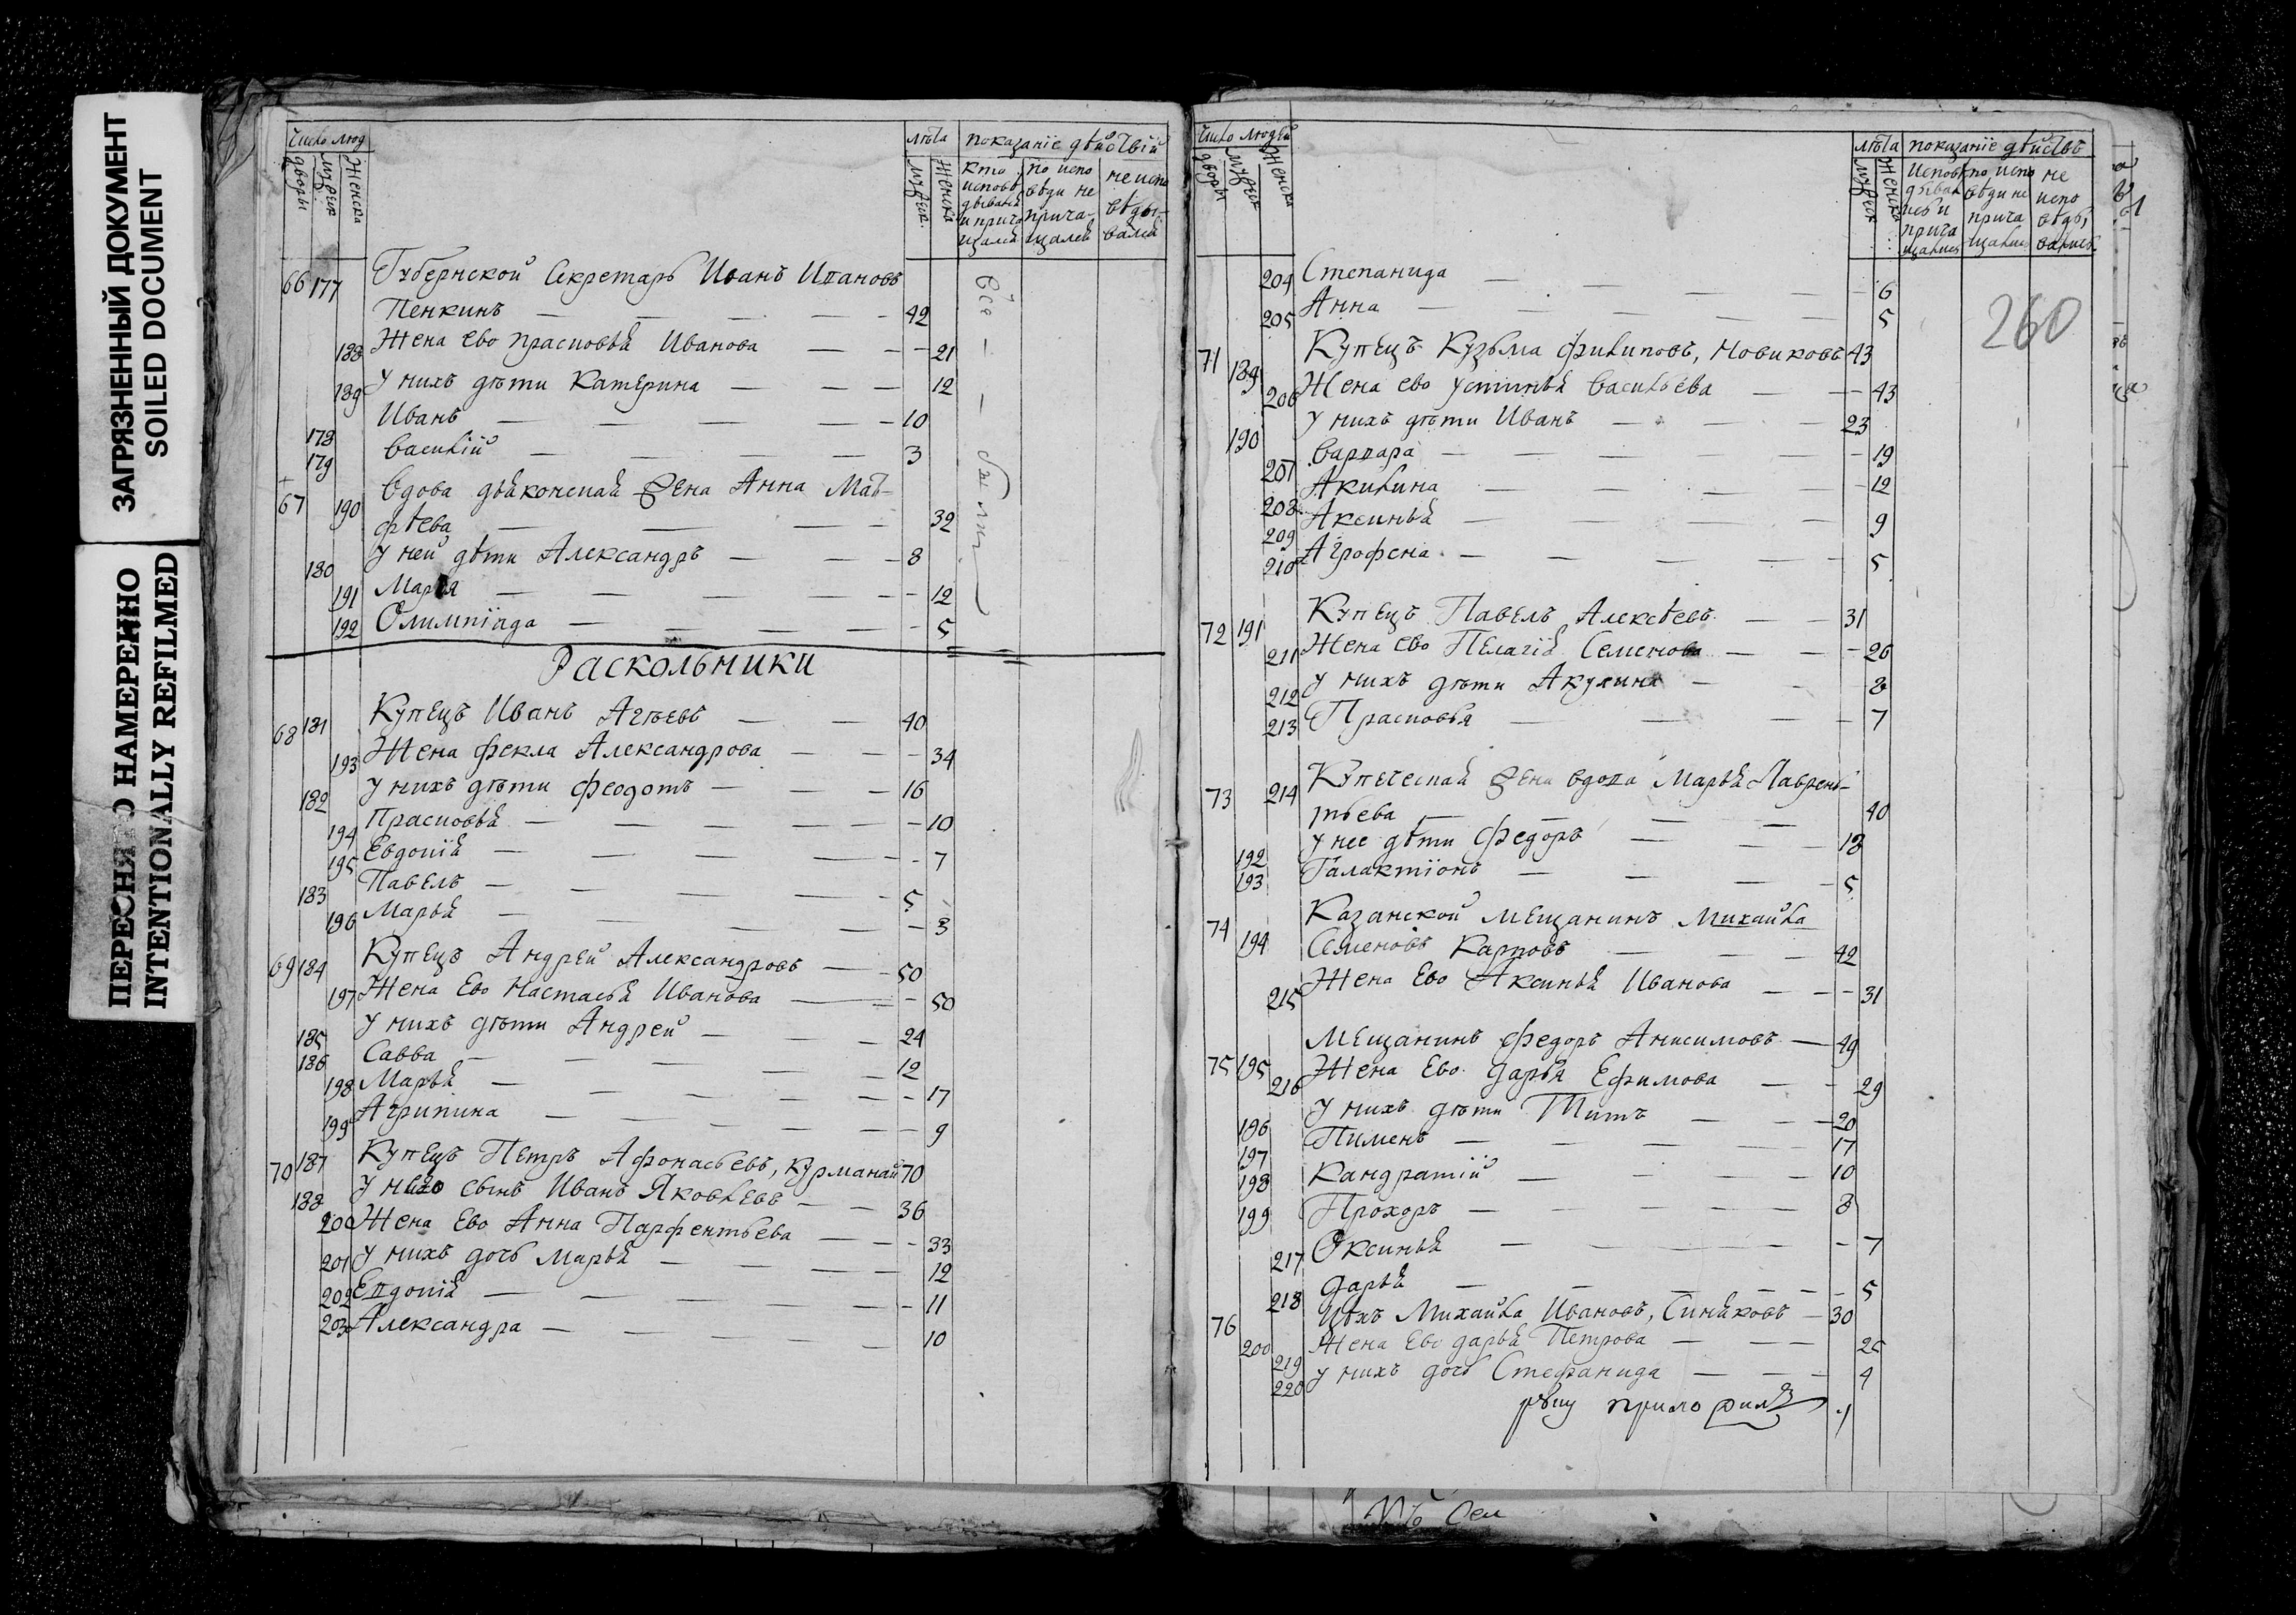 ЗАГРЯЗНЕННЫЙ ДОКУМЕНТ
SOILED DOCUMENT
ПЕРЕСНЯТО НАМЕРЕННО
INTENTIONALLY REFILMED
Число люд
дворы мужеск женска
лѣта
мужеск женска
показанїе дѣйствїй
кто исповѣдывался и причащался
по исповѣди не причащался
не исповѣдывался
66 177 Губернской Секретарь Иванъ Ивановъ
Пенкинъ — 42
188 Жена ево Прасковья Иванова — 21
189 У нихъ дѣти Катерина — 12
178 Иванъ — 10
179 Василїй — 3
67 190 Вдова дьяконская жена Анна Мат-
фѣева — 32
180 У ней дѣти Александръ — 8
191 Марья — 12
192 Олимпїада — 5
Все — — были
Раскольники
68 181 Купецъ Иванъ Агѣевъ — 40
193 Жена Фекла Александрова — 34
182 У нихъ дѣти Феодотъ — 16
194 Прасковья — 10
195 Евдокїя — 7
183 Павелъ — 5
196 Марья — 3
69 184 Купецъ Андрей Александровъ — 50
197 Жена Ево Настасья Иванова — 50
185 У нихъ дѣти Андрей — 24
186 Савва — 12
198 Марья — 17
199 Агрипина — 9
70 187 Купецъ Петръ Афонасьевъ, Курманай 70
188 У него сынъ Иванъ Яковлевъ — 36
200 Жена Ево Анна Парфентьева — 33
201 У нихъ дочь Марья — 12
202 Евдокїя — 11
203 Александра — 10
Число людей
дворы мужеск женска
лѣта
мужеск женска
показанїе дѣйствъ
исповѣдывались и причащались
по исповѣди не причащались
не исповѣдывались
260
204 Степанида — 6
205 Анна — 5
71 189 Купецъ Кузьма Филиповъ, Новиковъ 43
206 Жена ево Устинья Васильева — 43
190 У нихъ дѣти Иванъ — 23
207 Варвара — 19
208 Акилина — 12
209 Аксинья — 9
210 Агрофена — 5
72 191 Купецъ Павелъ Алексѣевъ — 31
211 Жена ево Пелагїя Семенова — 26
212 У нихъ дѣти Акулина — 8
213 Прасковья — 7
73 214 Купеческая жена вдова Марья Лаврень-
тьева — 40
192 У нее дѣти Федоръ — 18
193 Галактїонъ — 5
74 Казанской мещанинъ Михайла
194 Семеновъ Карповъ — 42
215 Жена Ево Аксинья Иванова — 31
75 195 Мещанинъ Федоръ Анисимовъ — 49
216 Жена Ево Дарья Ефимова — 29
196 У нихъ дѣти Титъ — 20
197 Пименъ — 17
198 Кандратїй — 10
199 Прохоръ — 8
217 Оксинья — 7
218 Дарья — 5
76 200 Цехъ Михайла Ивановъ, Синяковъ — 30
219 Жена Ево Дарья Петрова — 25
220 У нихъ дочь Стефанида — 4
руку приложилъ